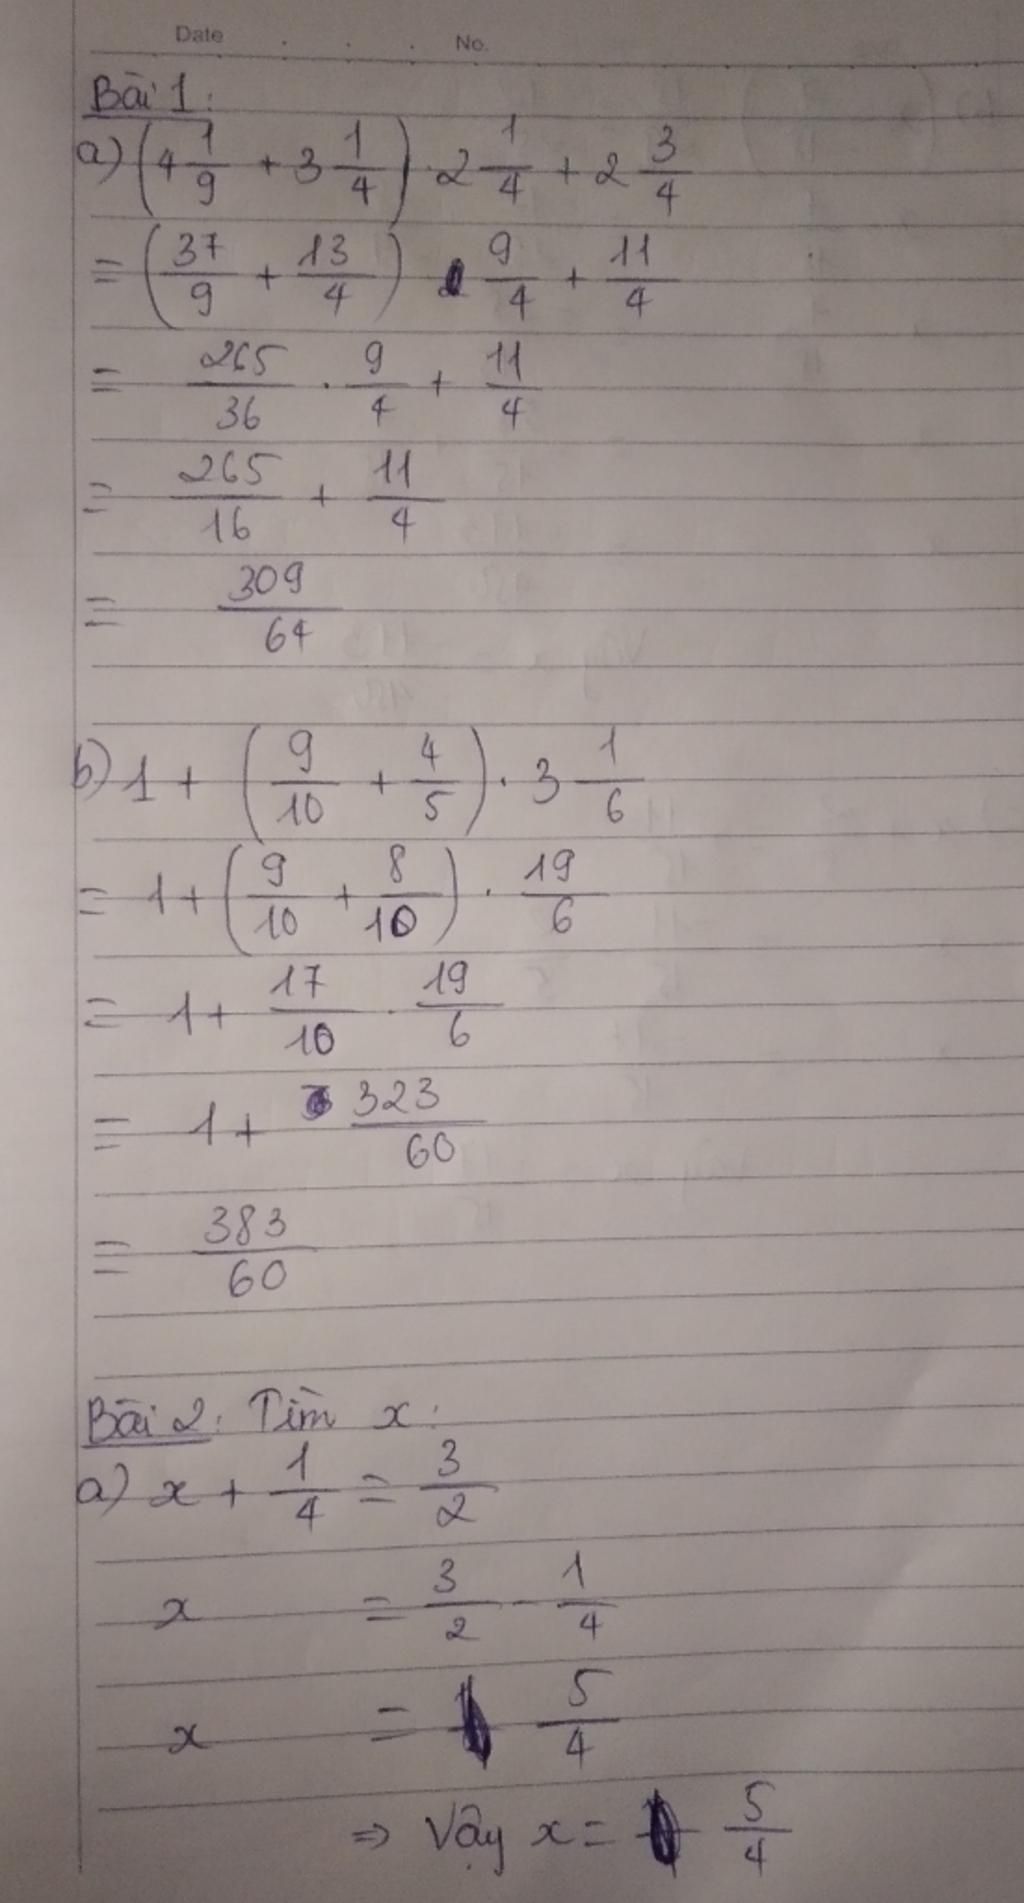 Date . . . No.
Bài 1:
a) (4 1/9 + 3 1/4) . 2 1/4 + 2 3/4
= (37/9 + 13/4) . 9/4 + 11/4
= 265/36 . 9/4 + 11/4
= 265/16 + 11/4
= 309/64
b) 1 + (9/10 + 4/5) . 3 1/6
= 1 + (9/10 + 8/10) . 19/6
= 1 + 17/10 . 19/6
= 1 + 323/60
= 383/60
Bài 2: Tìm x:
a) x + 1/4 = 3/2
x = 3/2 - 1/4
x = 5/4
⇒ Vậy x = 5/4